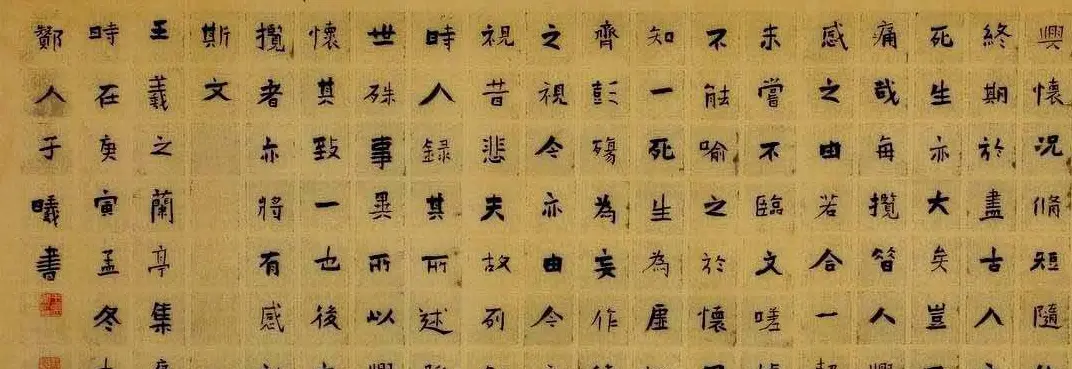 興懷況脩短隨
終期於盡古人
死生亦大矣豈
痛哉每攬昔人
感之由若合一
未嘗不臨文嗟
不能喻之於懷
知一死生為虛
齊彭殤為妄作
之視今亦由今
視昔悲夫故列
時人錄其所述
世殊事異所以
懷其致一也後
攬者亦將有感
斯文
王羲之蘭亭集
時在庚寅孟冬
鄭人于曦書